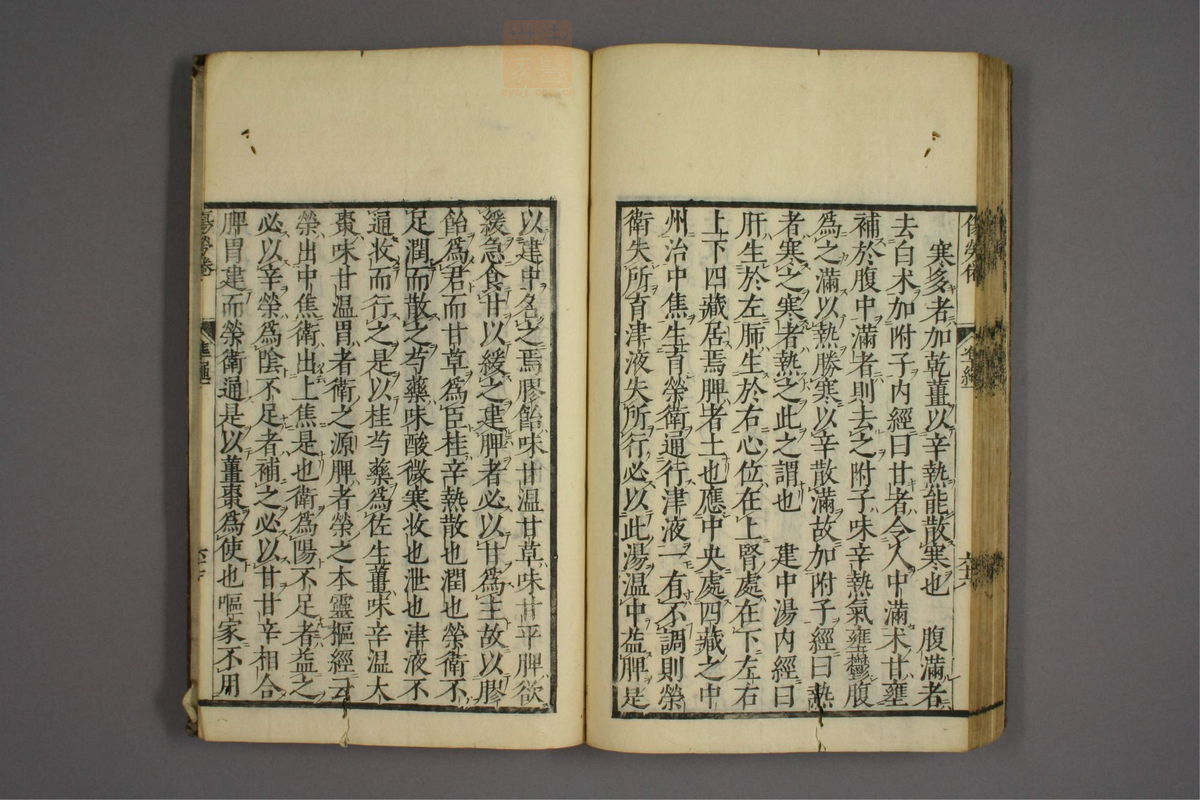 寒多者加乾薑以辛熱能散寒也　腹滿者
去白术加附子内經曰甘者令人中滿术甘壅
補於腹中滿者則去之附子味辛熱氣壅鬱腹
為之滿以熱勝寒以辛散滿故加附子經曰熱
者寒之寒者熱之此之謂也　建中湯内經曰
肝生於左肺生於右心位在上腎處在下左右
上下四藏居焉脾者土也應中央處四藏之中
州治中焦生育榮衛通行津液一有不調則榮
衛失所育津液失所行必以此湯温中益脾是
以建中名之焉膠飴味甘温甘草味甘平脾欲
緩急食甘以緩之建脾者必以甘為主故以膠
飴為君而甘草為臣桂辛熱散也潤也榮衛不
足潤而散之芍藥味酸微寒收也泄也津液不
通收而行之是以桂芍藥為佐生薑味辛温大
棗味甘温胃者衛之源脾者榮之本靈樞經云
榮出中焦衛出上焦是也衛為陽不足者益之
必以辛榮為陰不足者補之必以甘甘辛相合
脾胃建而榮衛通是以薑棗為使也嘔家不用